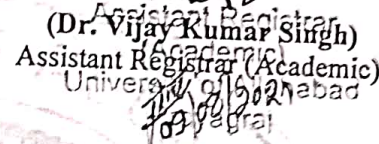 Assistant Registrar
(Dr. Vijay Kumar Singh)
(Academic)
Assistant Registrar (Academic)
University of Allahabad
09/08/2021
Prayagraj